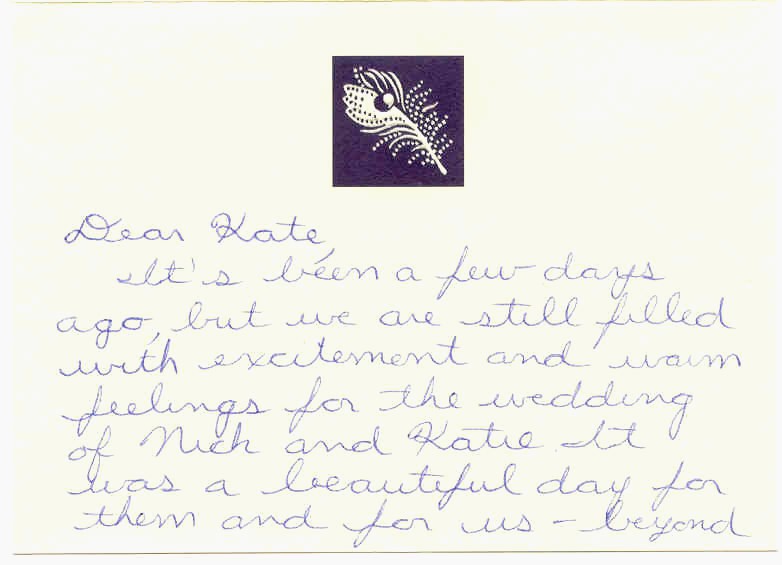 Dear Kate,
It's been a few days
ago, but we are still filled
with excitement and warm
feelings for the wedding
of Nick and Katie. It
was a beautiful day for
them and for us - beyond